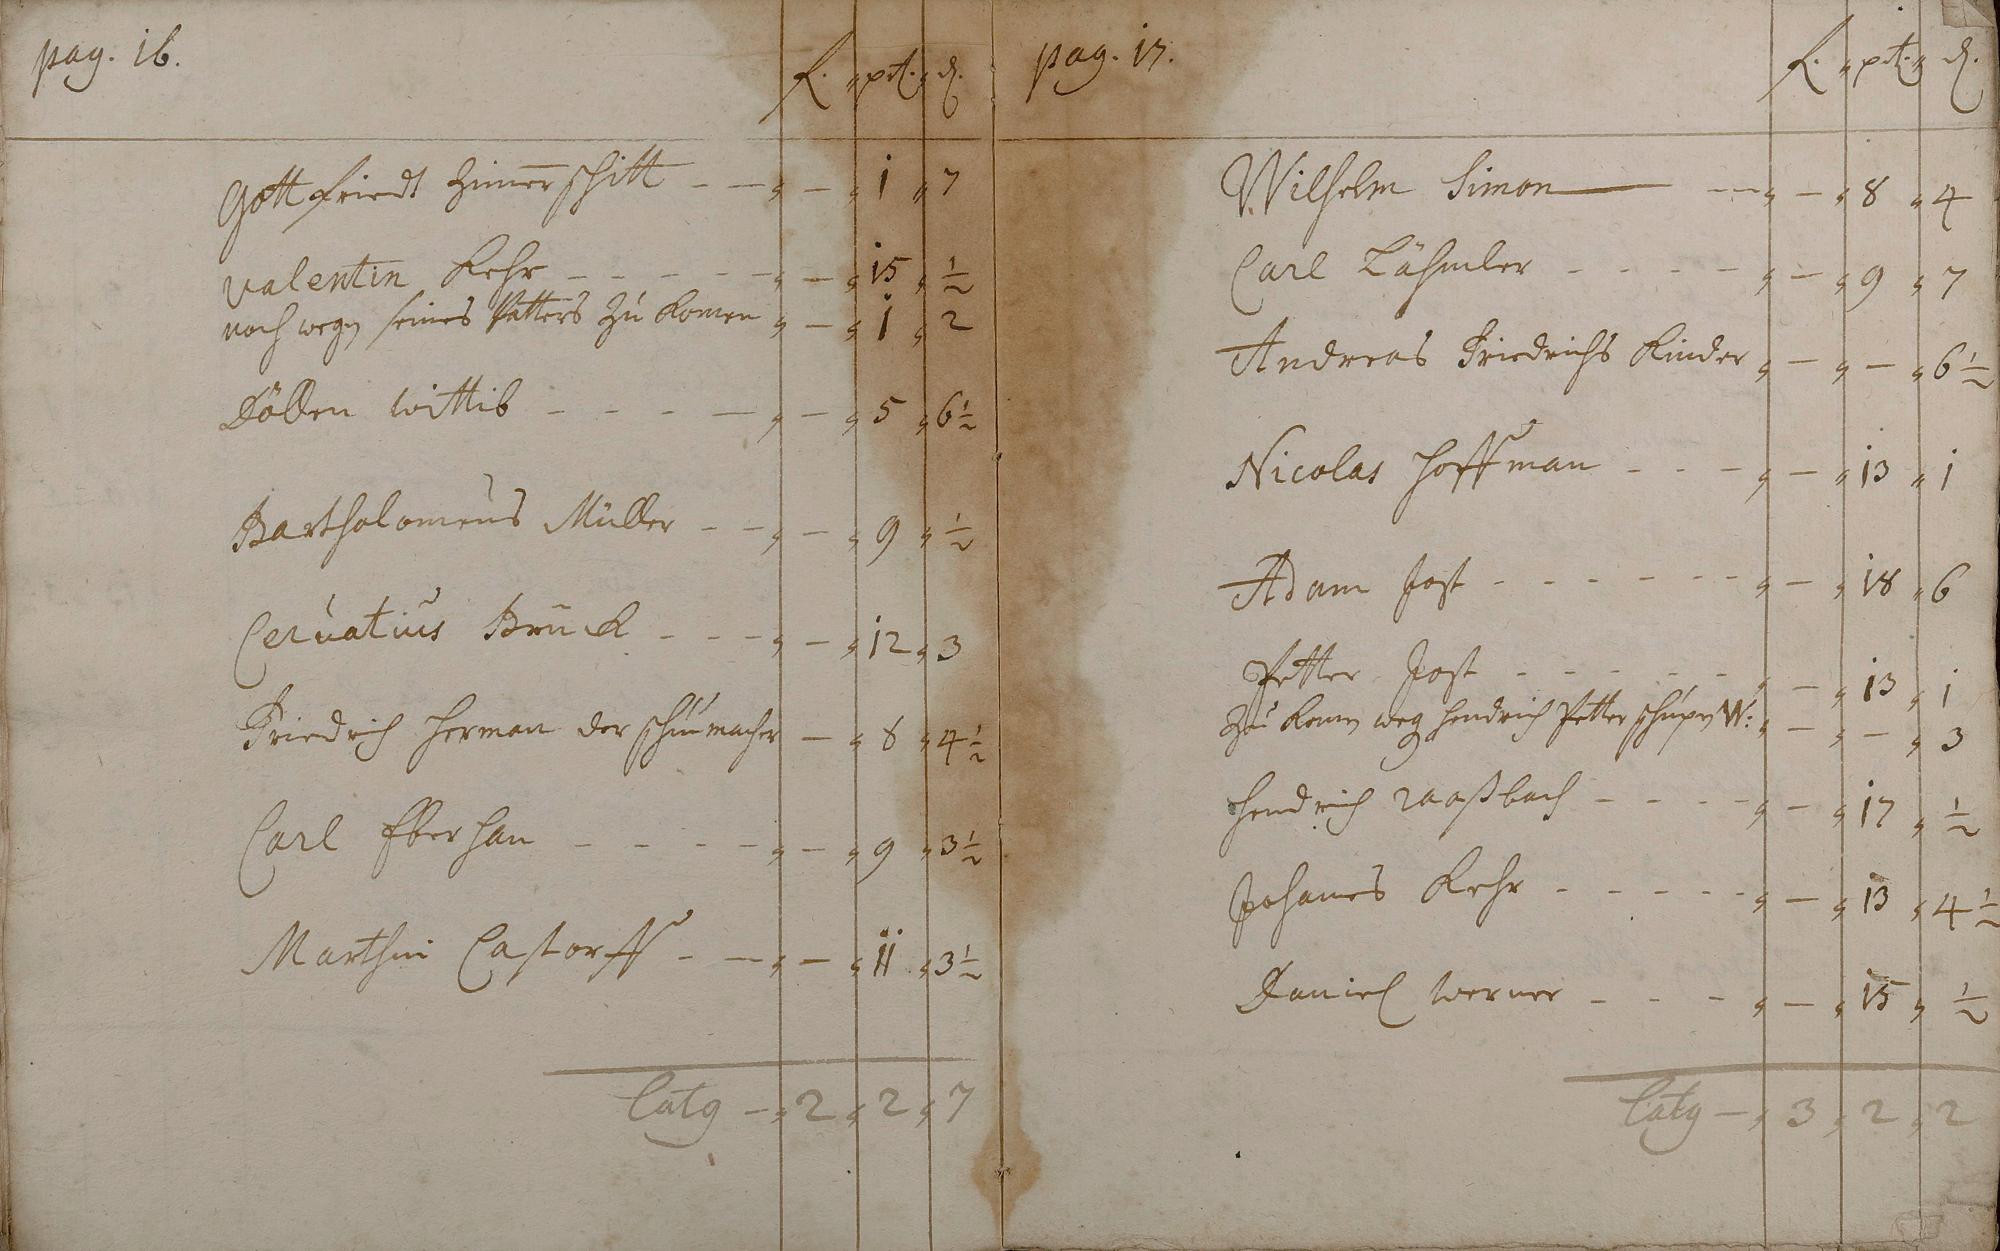 pag. 16.
f. " pct. " d.
Gottfriedt Zimerschitt - - " - " 1 " 7
Valentin Kehr - - - - - " - " 15 " ½
noch wegen seines Vatters zu komen " - " 1 " 2
Döllen wittib - - - - " - " 5 " 6½
Bartholomeus Müller - - " - " 9 " ½
Cervatius Brück - - - - " - " 12 " 3
Friedrich Herman der schumacher - " 8 " 4½
Carl Eberhan - - - - " - " 9 " 3½
Marthin Castorff - - " - " 11 " 3½
Latg - " 2 " 2 " 7
pag. 17.
f. " pct. " d.
Wilhelm Simon - - " - " 8 " 4
Carl Lähmler - - - - " - " 9 " 7
Andreas Friedrichs Kinder " - " - " 6½
Nicolas Hoffman - - - " - " 13 " 1
Adam Jost - - - - - - " - " 18 " 6
Petter Jost - - - - - " - " 13 " 1
zu komen weg Hendrich Petter W: " - " - " 3
Hendrich Raaßbach - - - - " - " 17 " ½
Johanes Kehr - - - - - " - " 13 " 4½
Daniel Werner - - - " - " 15 " ½
Latg - " 3 " 2 " 2